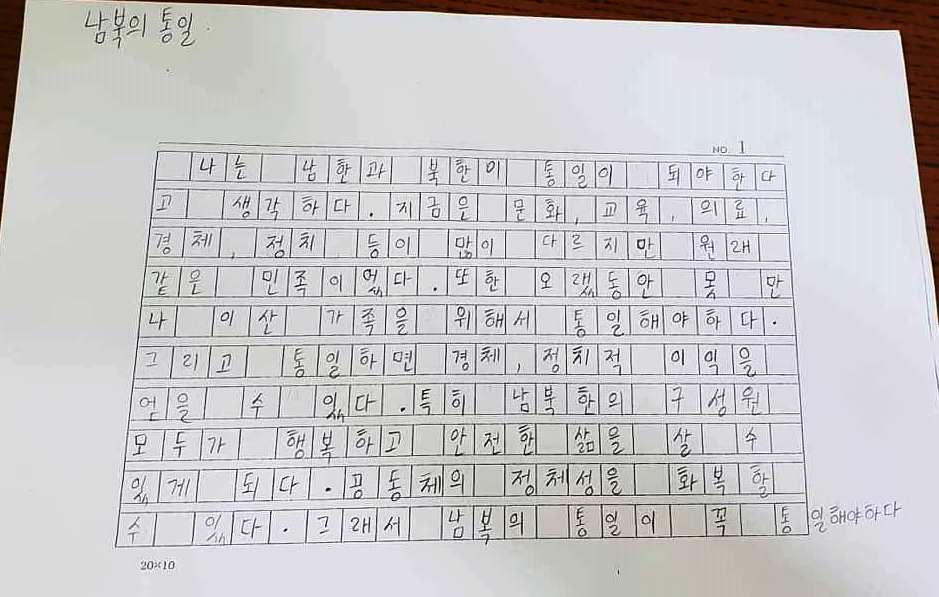 남북의 통일.
NO. 1
나는 남한과 북한이 통일이 되야한다
고 생각하다. 지금은 문화, 교육, 의료,
경체, 정치 등이 많이 다르지만 원래
같은 민족이었다. 또한 오랬동안 못 만
나 이산 가족을 위해서 통일해야하다.
그리고 통일하면 경체, 정치적 이익을
얻을 수 있다. 특히 남북한의 구성원
모두가 행복하고 안전한 삶을 살 수
있게 되다. 공동체의 정체성을 화복할
수 있다. 그래서 남북의 통일이 꼭 통일해야하다
20×10